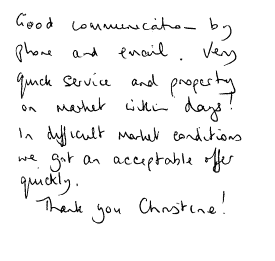 Good communication by
phone and email. Very
quick service and property
on market within days!
In difficult market conditions
we got an acceptable offer
quickly.
Thank you Christine!